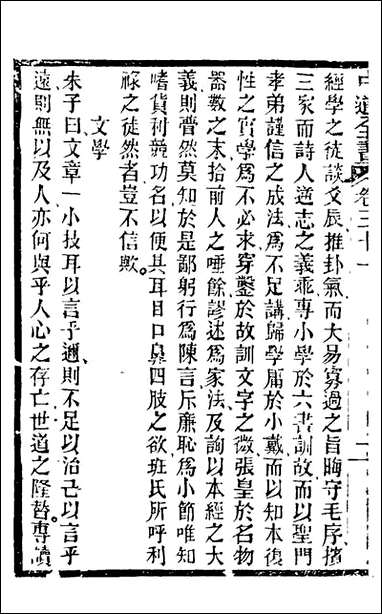 中道全書卷三十一　二
經學之徒談爻辰推卦氣而大易寡過之旨晦守毛序擯
三家而詩人逆志之義乖專小學於六書訓故而以聖門
孝弟謹信之成法爲不足講歸學庸於小戴而以知本復
性之實學爲不必求穿鑿於故訓文字之微張皇於名物
器數之末拾前人之唾餘謬述爲家法及詢以本經之大
義則瞢然莫知於是鄙躬行爲陳言斥廉恥爲小節唯知
嗜貨利競功名以便其耳目口鼻四肢之欲班氏所呼利
祿之徒然者豈不信歟
文學
朱子曰文章一小技耳以言乎邇則不足以治己以言乎
遠則無以及人亦何與乎人心之存亡世道之隆替專讀